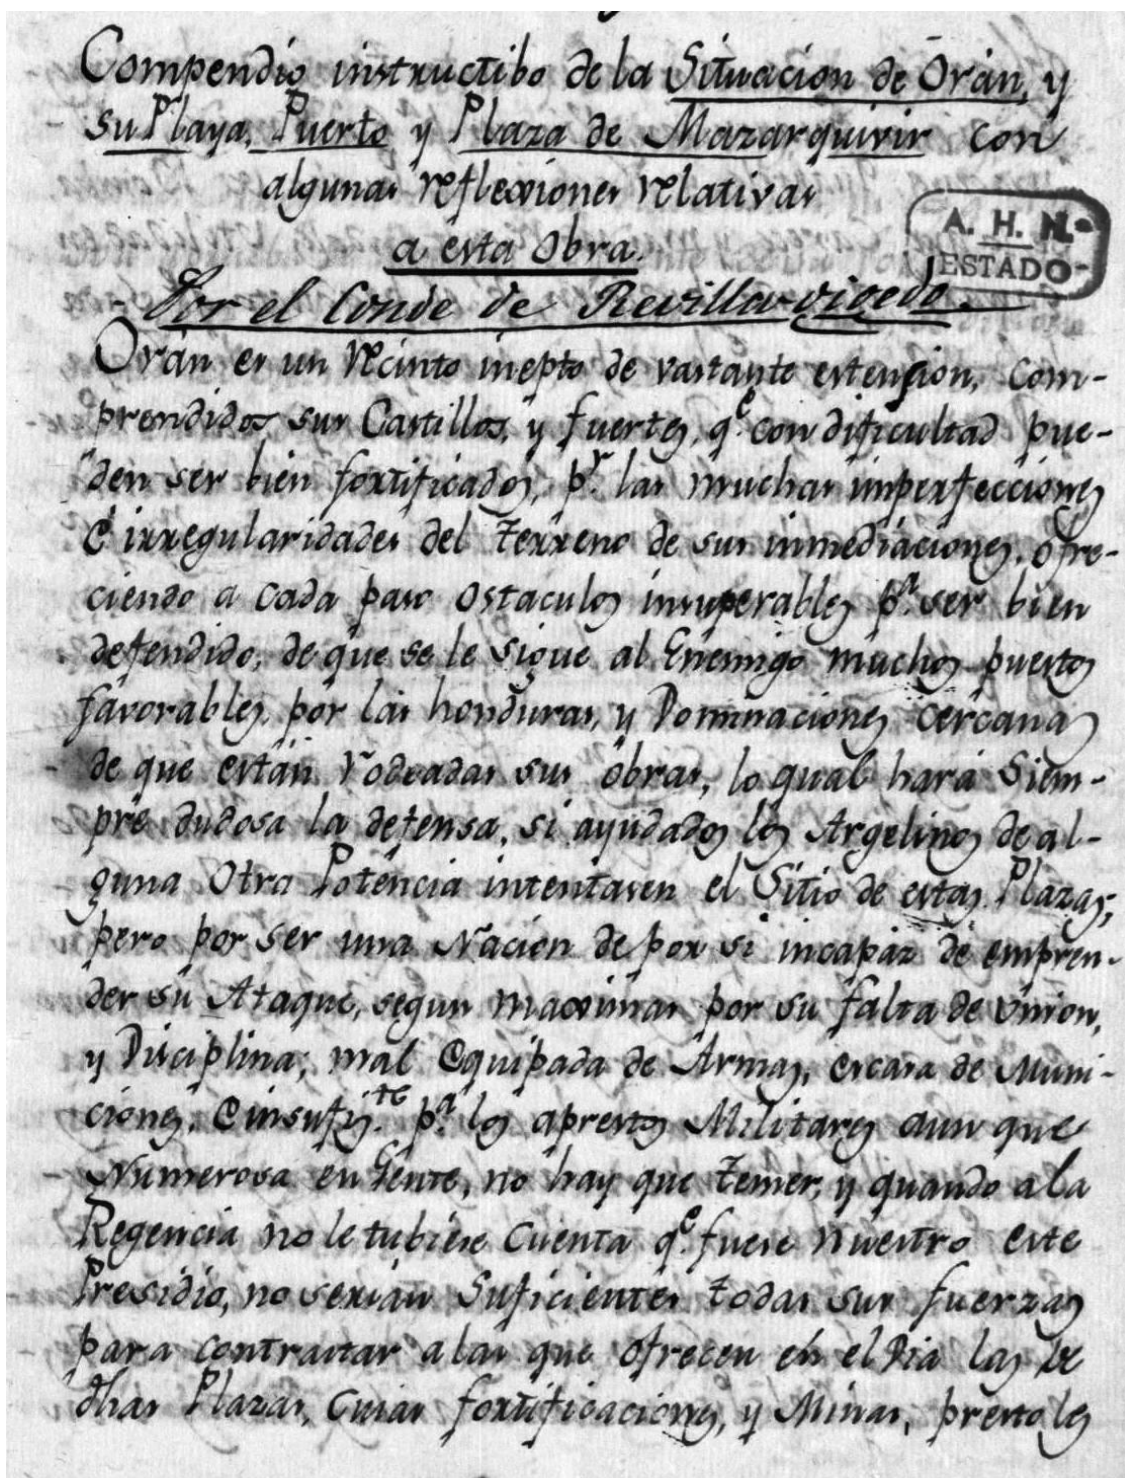 Compendio instructibo de la Situacion de Orán, y
su Playa, Puerto y Plaza de Mazarquivir con
algunas reflexiones relativas
a esta Obra.
A. H. N.
ESTADO
Por el Conde de Revilla-vigedo.
Orán es un recinto inepto de vastante estension, com-
prendidos sus Castillos, y fuertes, q.e con dificultad pue-
den ser bien fortificados, p.r las muchas imperfecciones
é irregularidades del terreno de sus inmediaciones, ofre-
ciendo a cada paso ostaculos insuperables p.a ser bien
defendido, de que se le sigue al Enemigo muchos puestos
favorables, por las honduras, y Dominaciones cercanas
de que están rodeadas sus obras, lo qual hará siem-
pre dudosa la defensa, si ayudados los Argelinos de al-
guna Otra Potencia intentasen el Sitio de estas Plazas,
pero por ser una Nacion de por si incapáz de empren-
der su Ataque, segun maximas por su falta de Union,
y Disciplina, mal equipada de Armas, escasa de Muni-
ciones, e insufiz.te p.a los aprestos Militares aun que
Numerosa en Gente, no hay que temer, y quando a la
Regencia no le tubiese Cuenta q.e fuese nuestro este
Presidio, no serían suficientes todas sus fuerzas
para contrastar a las que ofrecen en el Dia las de
dhas Plazas, Cuias fortificaciones, y Minas, presto les